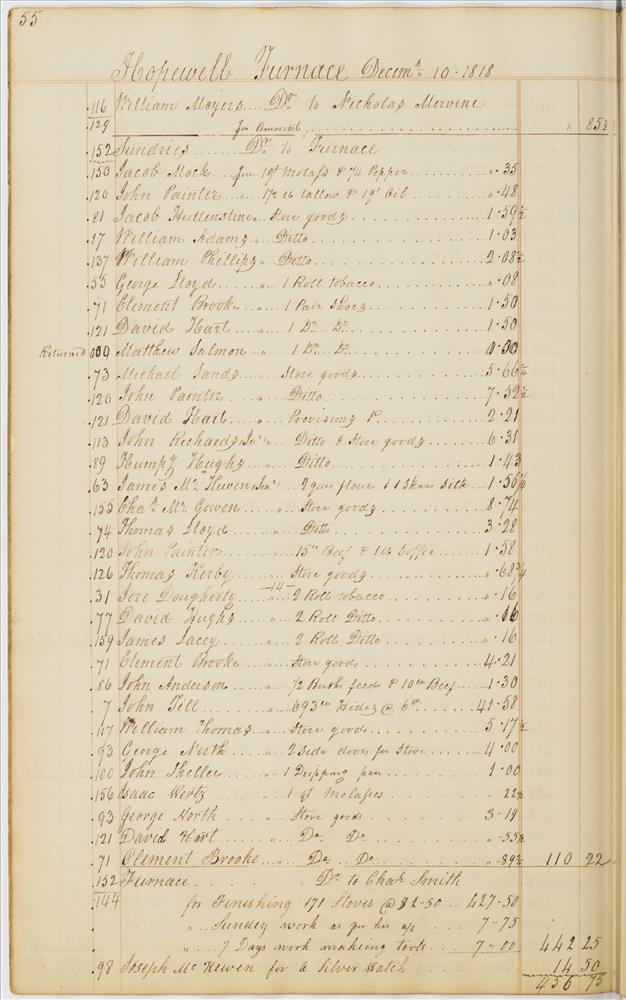 55
Hopewell Furnace Decemr 10 · 1818
116 William Moyers .... Dr to Nicholas Mervine
129 for Amount ........ " 85½
152 Sundries ...... Dr to Furnace
150 Jacob Mock ... for 1 qt Molass & ¼ Pepper .... " · 35
120 John Painter .. " 1½ lb tallow & 1 qt Oil .... " · 48
81 Jacob Huttenstine .. Store goods .... 1 · 59½
87 William Adams " Ditto .... 1 · 03
137 William Phillips " Ditto .... 2 · 08½
55 George Lloyd .... " 1 Roll tobacco .... " · 08
71 Clement Brooke .. " 1 Pair Shoes .... 1 · 50
121 David Hart .... " 1 Do Do .... 1 · 50
Returned 000 Matthew Salmon " 1 Do Do .... 0 · 00
73 Michael Sands ... Store goods .... 5 · 66½
120 John Painter .... " Ditto .... 7 · 52½
121 David Hart .... " Provisions .... 2 · 21
113 John Richards Senr " Ditto & Store goods .... 6 · 31
89 Humpy Hughs ... " Ditto .... 1 · 43
63 James Mc Kewen Senr " 2 flour & 1 Skane Silk .. 1 · 56¼
155 Chas Mc Gowen .. " Store goods .... 8 · 74
74 Thomas Lloyd .... " Ditto .... 3 · 28
120 John Painter .... " 15lb Beef & 1 lb Coffee ... 1 · 58
126 Thomas Kerby .... " Store goods .... " · 68¾
—14—
31 Jere Dougherty .... " 2 Rolls tobacco .... " · 16
77 David Hughs .... " 2 Roll Ditto .... " · 16
159 James Lacey .... " 2 Rolls Ditto .... " · 16
71 Clement Brooke " Store goods .... 4 · 21
86 John Anderson .... " ½ Bush feed & 10lb Beef .. 1 · 30
7 John Till .... " 693lb Hides @ 6c .. 41 · 58
117 William Thomas " Store goods .... 5 · 17½
93 George North .... " 2 side doors for Stove ... 4 · 00
100 John Sheller .... " 1 Dripping pan .... 1 · 00
156 Isaac Wertz .... " 1 qt Molasses .... 22½
93 George North .... " Store goods .... 3 - 19
121 David Hart .... " Do Do .... " · 55½
71 Clement Brooke .. " Do .. Do .... " · 89½ 110 22
152 Furnace .... Dr to Chas Smith
144 for Finishing 171 Stoves @ $2-50 .. 427 · 50
" Sunday work as per his a/c .. 7 · 75
" .. 7 Days work makeing tools .... 7 · 00 442 25
98 Joseph Mc Kewen for a Silver Watch .... 14 50
456 75